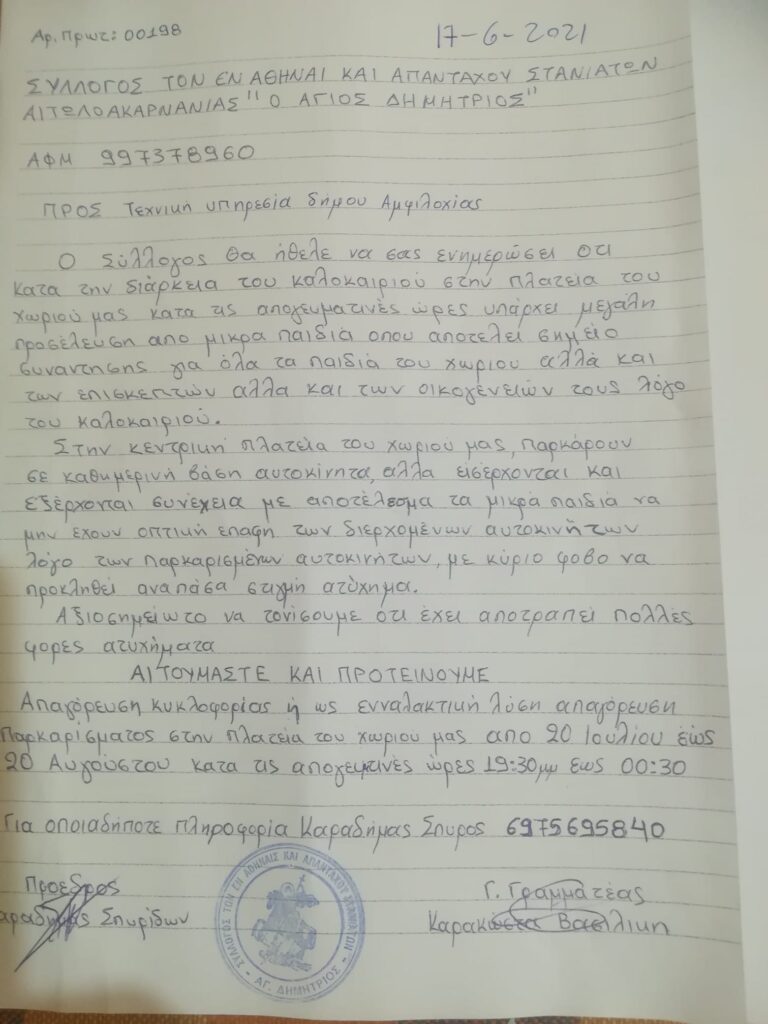 Αρ. Πρωτ: 00198
17-6-2021
ΣΥΛΛΟΓΟΣ ΤΟΝ ΕΝ ΑΘΗΝΑΙ ΚΑΙ ΑΠΑΝΤΑΧΟΥ ΣΤΑΝΙΑΤΩΝ
ΑΙΤΩΛΟΑΚΑΡΝΑΝΙΑΣ "Ο ΑΓΙΟΣ ΔΗΜΗΤΡΙΟΣ"
ΑΦΜ 997378960
ΠΡΟΣ Τεχνικη υπηρεσία δήμου Αμφιλοχίας
Ο Σύλλογος θα ήθελε να σας ενημερώσει οτι
κατα την διάρκεια του καλοκαιριού στην πλατεία του
χωριού μας κατα τις απογευματινές ώρες υπάρχει μεγάλη
προσέλευση απο μικρα παιδιά οπου αποτελει σημείο
συναντησης για όλα τα παιδιά του χωριου αλλά και
των επισκεπτών αλλα και των οικογένειών τους λόγο
του καλοκαιριού.
Στην κεντρική πλατεία του χωριού μας, παρκάρουν
σε καθημερινή βάση αυτοκίνητα, αλλα εισέρχονται και
εξέρχονται συνέχεια με αποτέλεσμα τα μικρά παιδιά να
μην έχουν οπτική επαφη των διερχομένων αυτοκινήτων
λόγο των παρκαρισμένων αυτοκινήτων, με κύριο φοβο να
προκληθεί αναπάσα στιγμή ατύχημα.
Αξιοσημείωτο να τονίσουμε οτι έχει αποτραπει πολλές
φορες ατυχήματα
ΑΙΤΟΥΜΑΣΤΕ ΚΑΙ ΠΡΟΤΕΙΝΟΥΜΕ
Απαγόρευση κυκλοφορίας ή ως ενναλακτική λύση απαγόρευση
Παρκαρίσματος στην πλατεία του χωριου μας απο 20 Ιουλίου έως
20 Αυγούστου κατα τις ώρες 19:30μμ εως 00:30
Για οποιαδήποτε πληροφορία Καραδήμας Σπυρος 6975695840
Προεδρος
αραδήμας Σπυρίδων
Γ. Γραμματέας
Καρακώστα Βασιλικη
ΣΥΛΛΟΓΟΣ ΤΩΝ ΕΝ ΑΘΗΝΑΙΣ ΚΑΙ ΑΠΑΝΤΑΧΟΥ ΣΤΑΝΙΑΤΩΝ
ΑΓ. ΔΗΜΗΤΡΙΟΣ